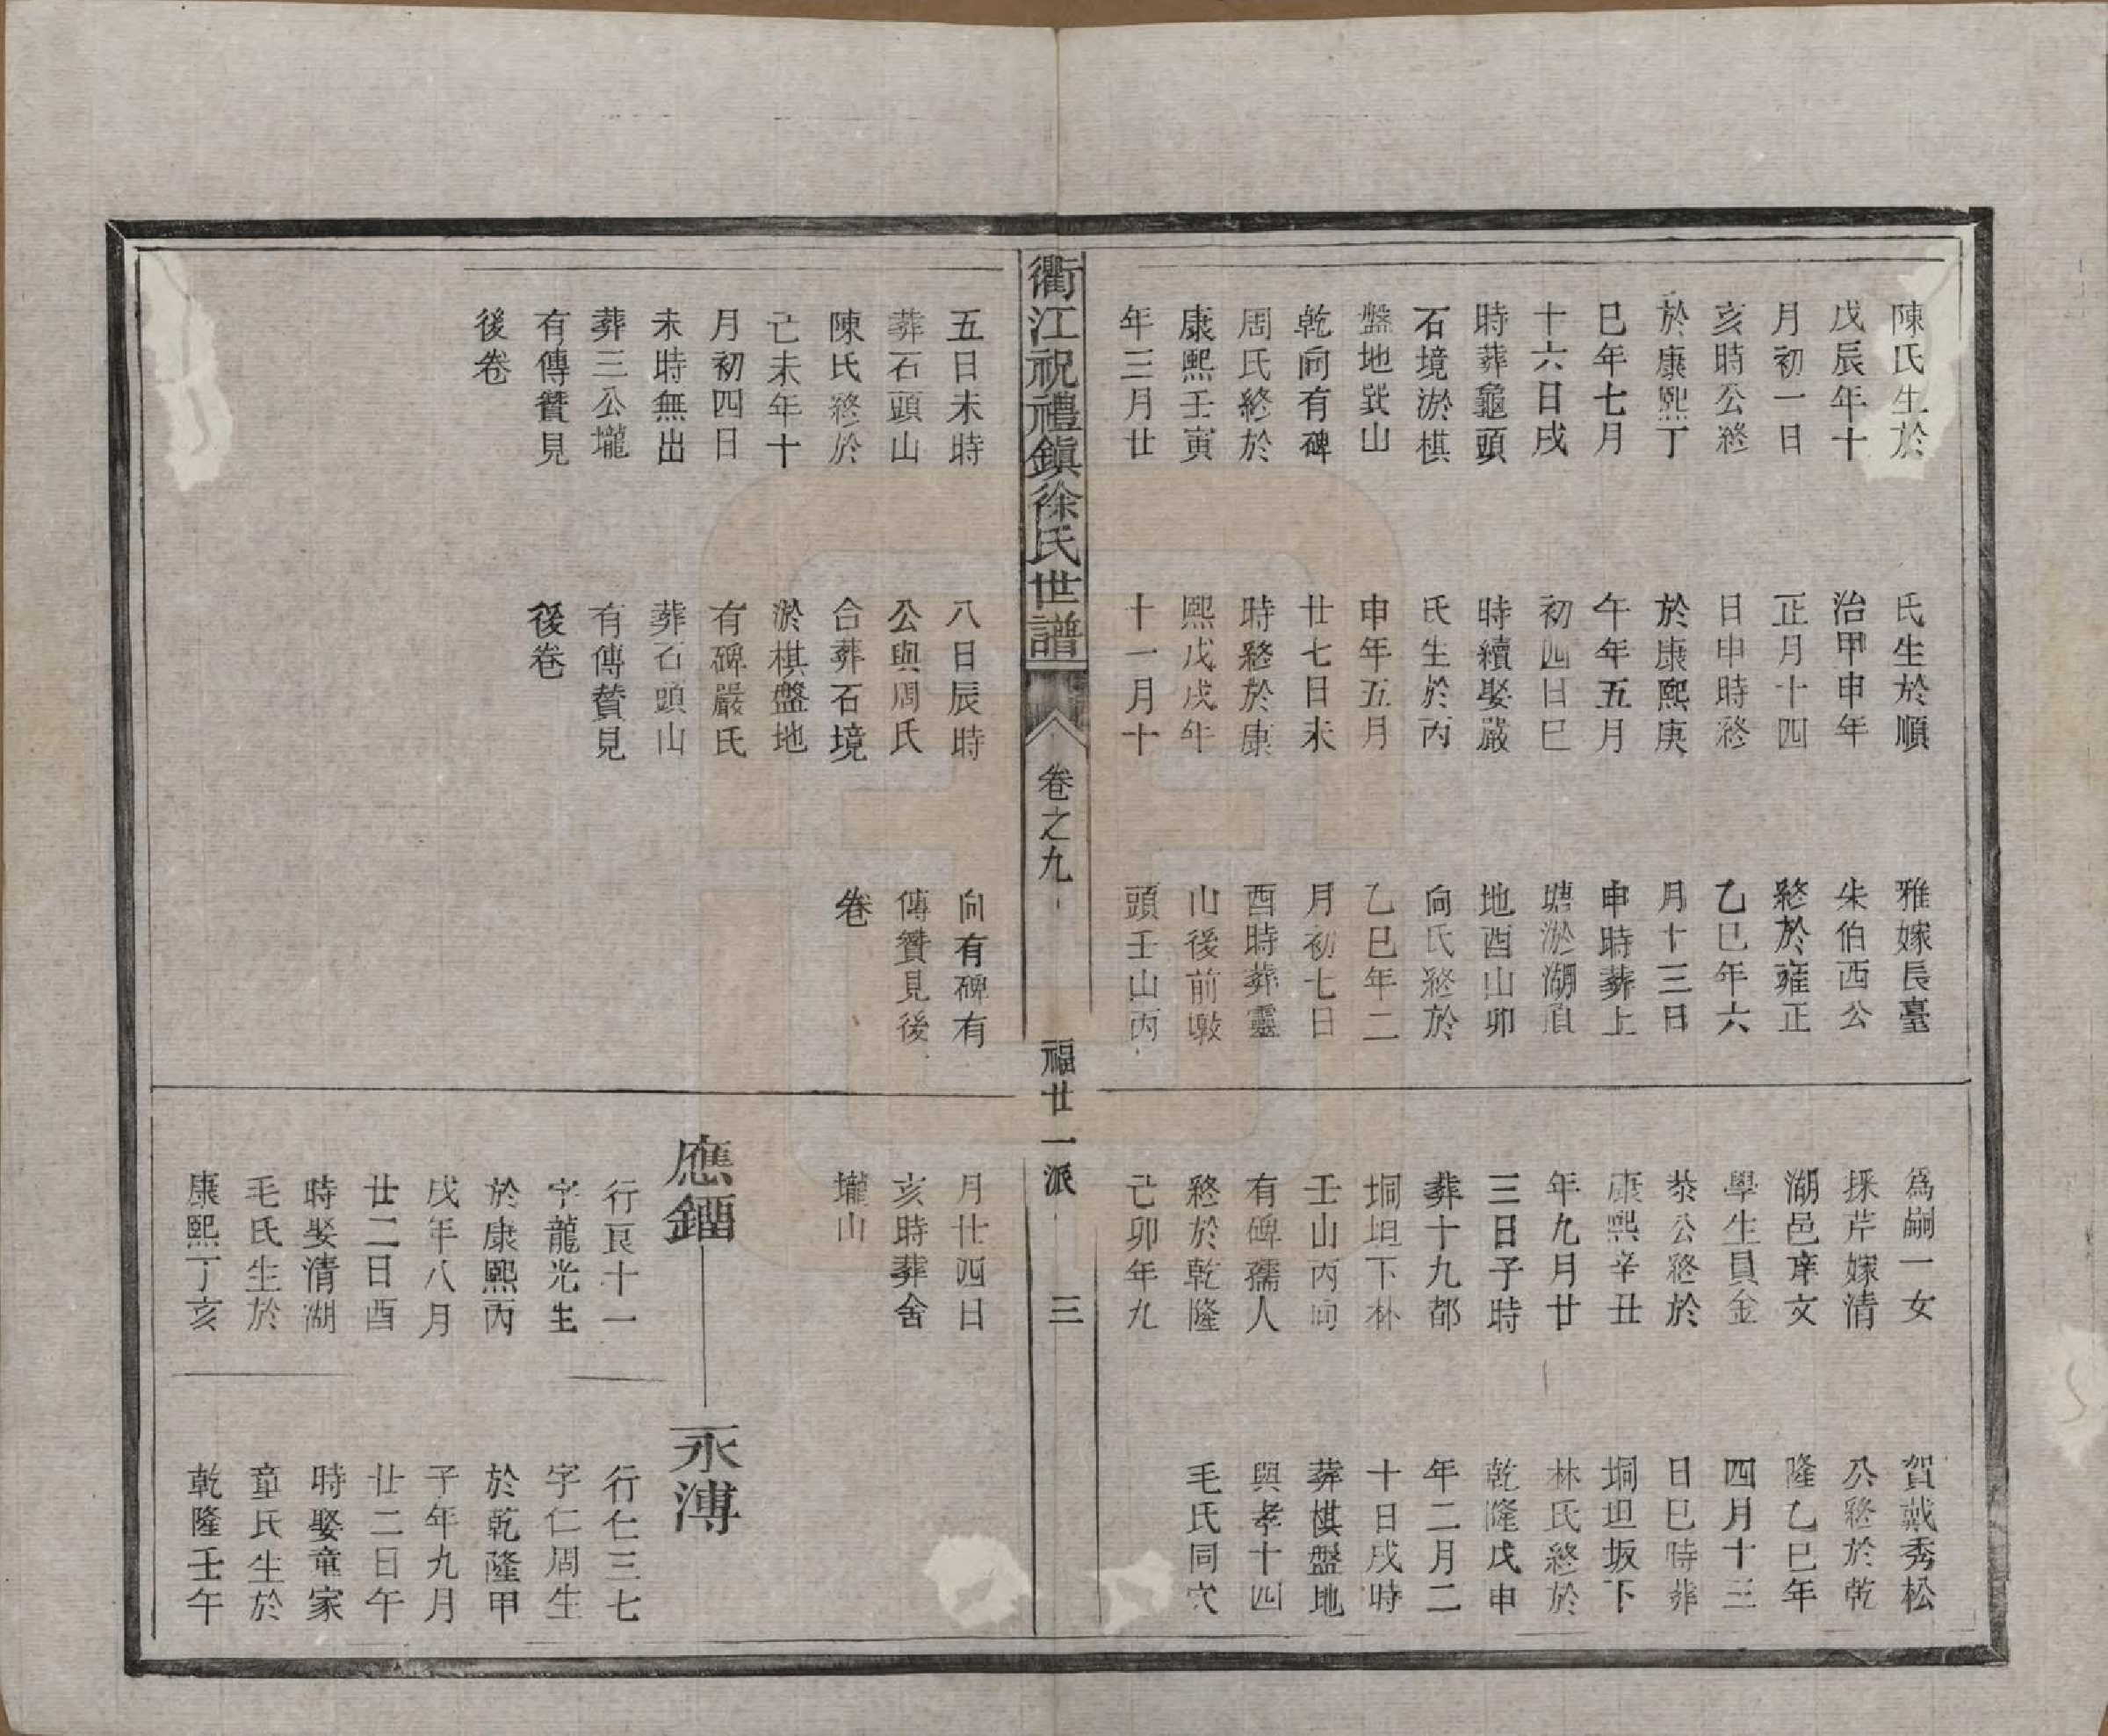 陳氏生於
戊辰年十
月初一日
亥時公終
於康熙丁
巳年七月
十六日戌
時葬龜頭
石境淤棋
盤地巽山
乾向有碑
周氏終於
康熙壬寅
年三月廿
氏生於順
治甲申年
正月十四
日申時終
於康熙庚
午年五月
初四日巳
時續娶嚴
氏生於丙
申年五月
廿七日未
時終於康
熙戊戌年
十一月十
雅嫁長臺
朱伯西公
終於雍正
乙巳年六
月十三日
申時葬上
塘淤湖眉
地酉山卯
向氏終於
乙巳年二
月初七日
酉時葬靈
山後前墩
頭壬山丙
為嗣一女
採芹嫁清
湖邑庠文
學生員金
恭公終於
康熙辛丑
年九月廿
三日子時
葬十九都
垌坦下林
壬山丙向
有碑孺人
終於乾隆
己卯年九
賀戴秀松
公終於乾
隆乙巳年
四月十三
日巳時葬
垌坦坂下
林氏終於
乾隆戊申
年二月二
十日戌時
葬棋盤地
與孝十四
毛氏同穴
衢江祝禮鎭徐氏世譜
卷之九
福廿一派
三
五日未時
葬石頭山
陳氏終於
己未年十
月初四日
未時無出
葬三公壠
有傳贊見
後卷
八日辰時
公與周氏
合葬石境
淤棋盤地
有碑嚴氏
葬石頭山
有傳贊見
後卷
向有碑有
傳贊見後
卷
月廿四日
亥時葬舍
壠山
應鐔
行良十一
字龍光生
於康熙丙
戌年八月
廿二日酉
時娶清湖
毛氏生於
康熙丁亥
永溥
行仁三七
字仁周生
於乾隆甲
子年九月
廿二日午
時娶童家
童氏生於
乾隆壬午